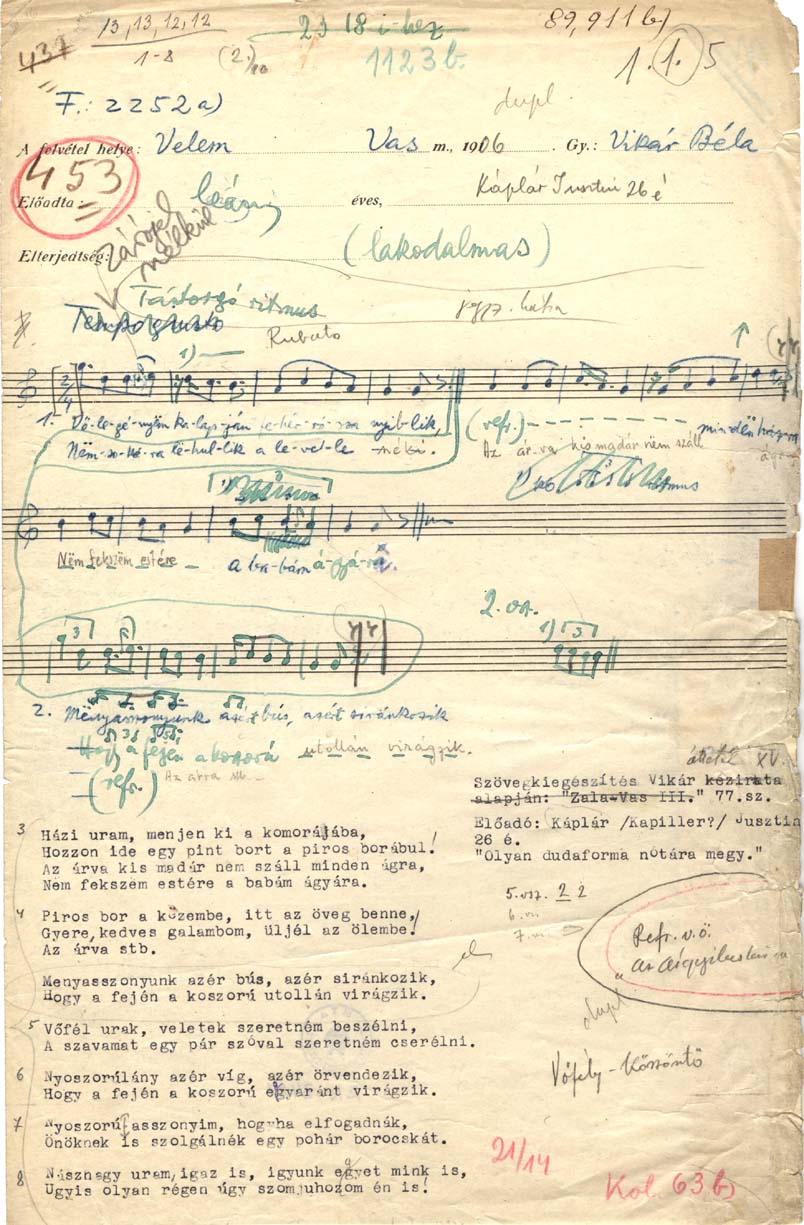 13, 13, 12, 12
23 18 i-hez
89,911 b)
437
1-8
1123 b.
1.1.5
F.: 2252 a)
dupl.
A felvétel helye: Velem Vas m., 1906. Gy.: Vikár Béla
453
Előadta: leány éves, Káplár Jusztin 26 é
zárójel
nélkül
Elterjedtség: (lakodalmas)
Tántorgó ritmus
Tempo giusto
Rubato
1)
2/4
1. Vő-le-gé-nyëm ka-lap-ján fe-hér ró-zsa nyib-lik,
(refr.)
minden ágra
Nëm-so-ká-ra lë-hul-lik a le-vel-le néki.
Az ár-va kis madár nëm száll
Nëm fekszëm estére a ba-bám á-gyá-ra.
2. vsz.
1) 3
3
2. Mënyasszonyunk azért bús, azért siránkozik
Hogy a fején a koszorú utollán virágzik.
(refr.) Az árva stb.
XV.
Szövegkiegészítés Vikár kézirata
alapján: "Zala-Vas III." 77.sz.
Előadó: Káplár /Kapiller?/ Jusztin
26 é.
"Olyan dudaforma nótára megy."
3 Házi uram, menjen ki a komorájába,
Hozzon ide egy pint bort a piros borábul!
Az árva kis madár nem száll minden ágra,
Nem fekszem estére a babám ágyára.
5. vsz. 2 2
6.
7.
4 Piros bor a közembe, itt az öveg benne,
Gyere, kedves galambom, üljél az ölembe!
Az árva stb.
Refr. v.ö.
Menyasszonyunk azér bús, azér siránkozik,
Hogy a fején a koszorú utollán virágzik.
el
dupl
5 Vőfél urak, veletek szeretném beszélni,
A szavamat egy pár szóval szeretném cserélni.
Vőfély-Köszöntő
6 Nyoszorúlány azér víg, azér örvendezik,
Hogy a fején a koszorú egyaránt virágzik.
7 Nyoszorúasszonyim, hogyha elfogadnák,
Önöknek is szolgálnék egy pohár borocskát.
21/14
8 Násznagy uram, igaz is, igyunk egyet mink is,
Ugyis olyan régen úgy szomjuhozom én is!
Kol. 63 b)